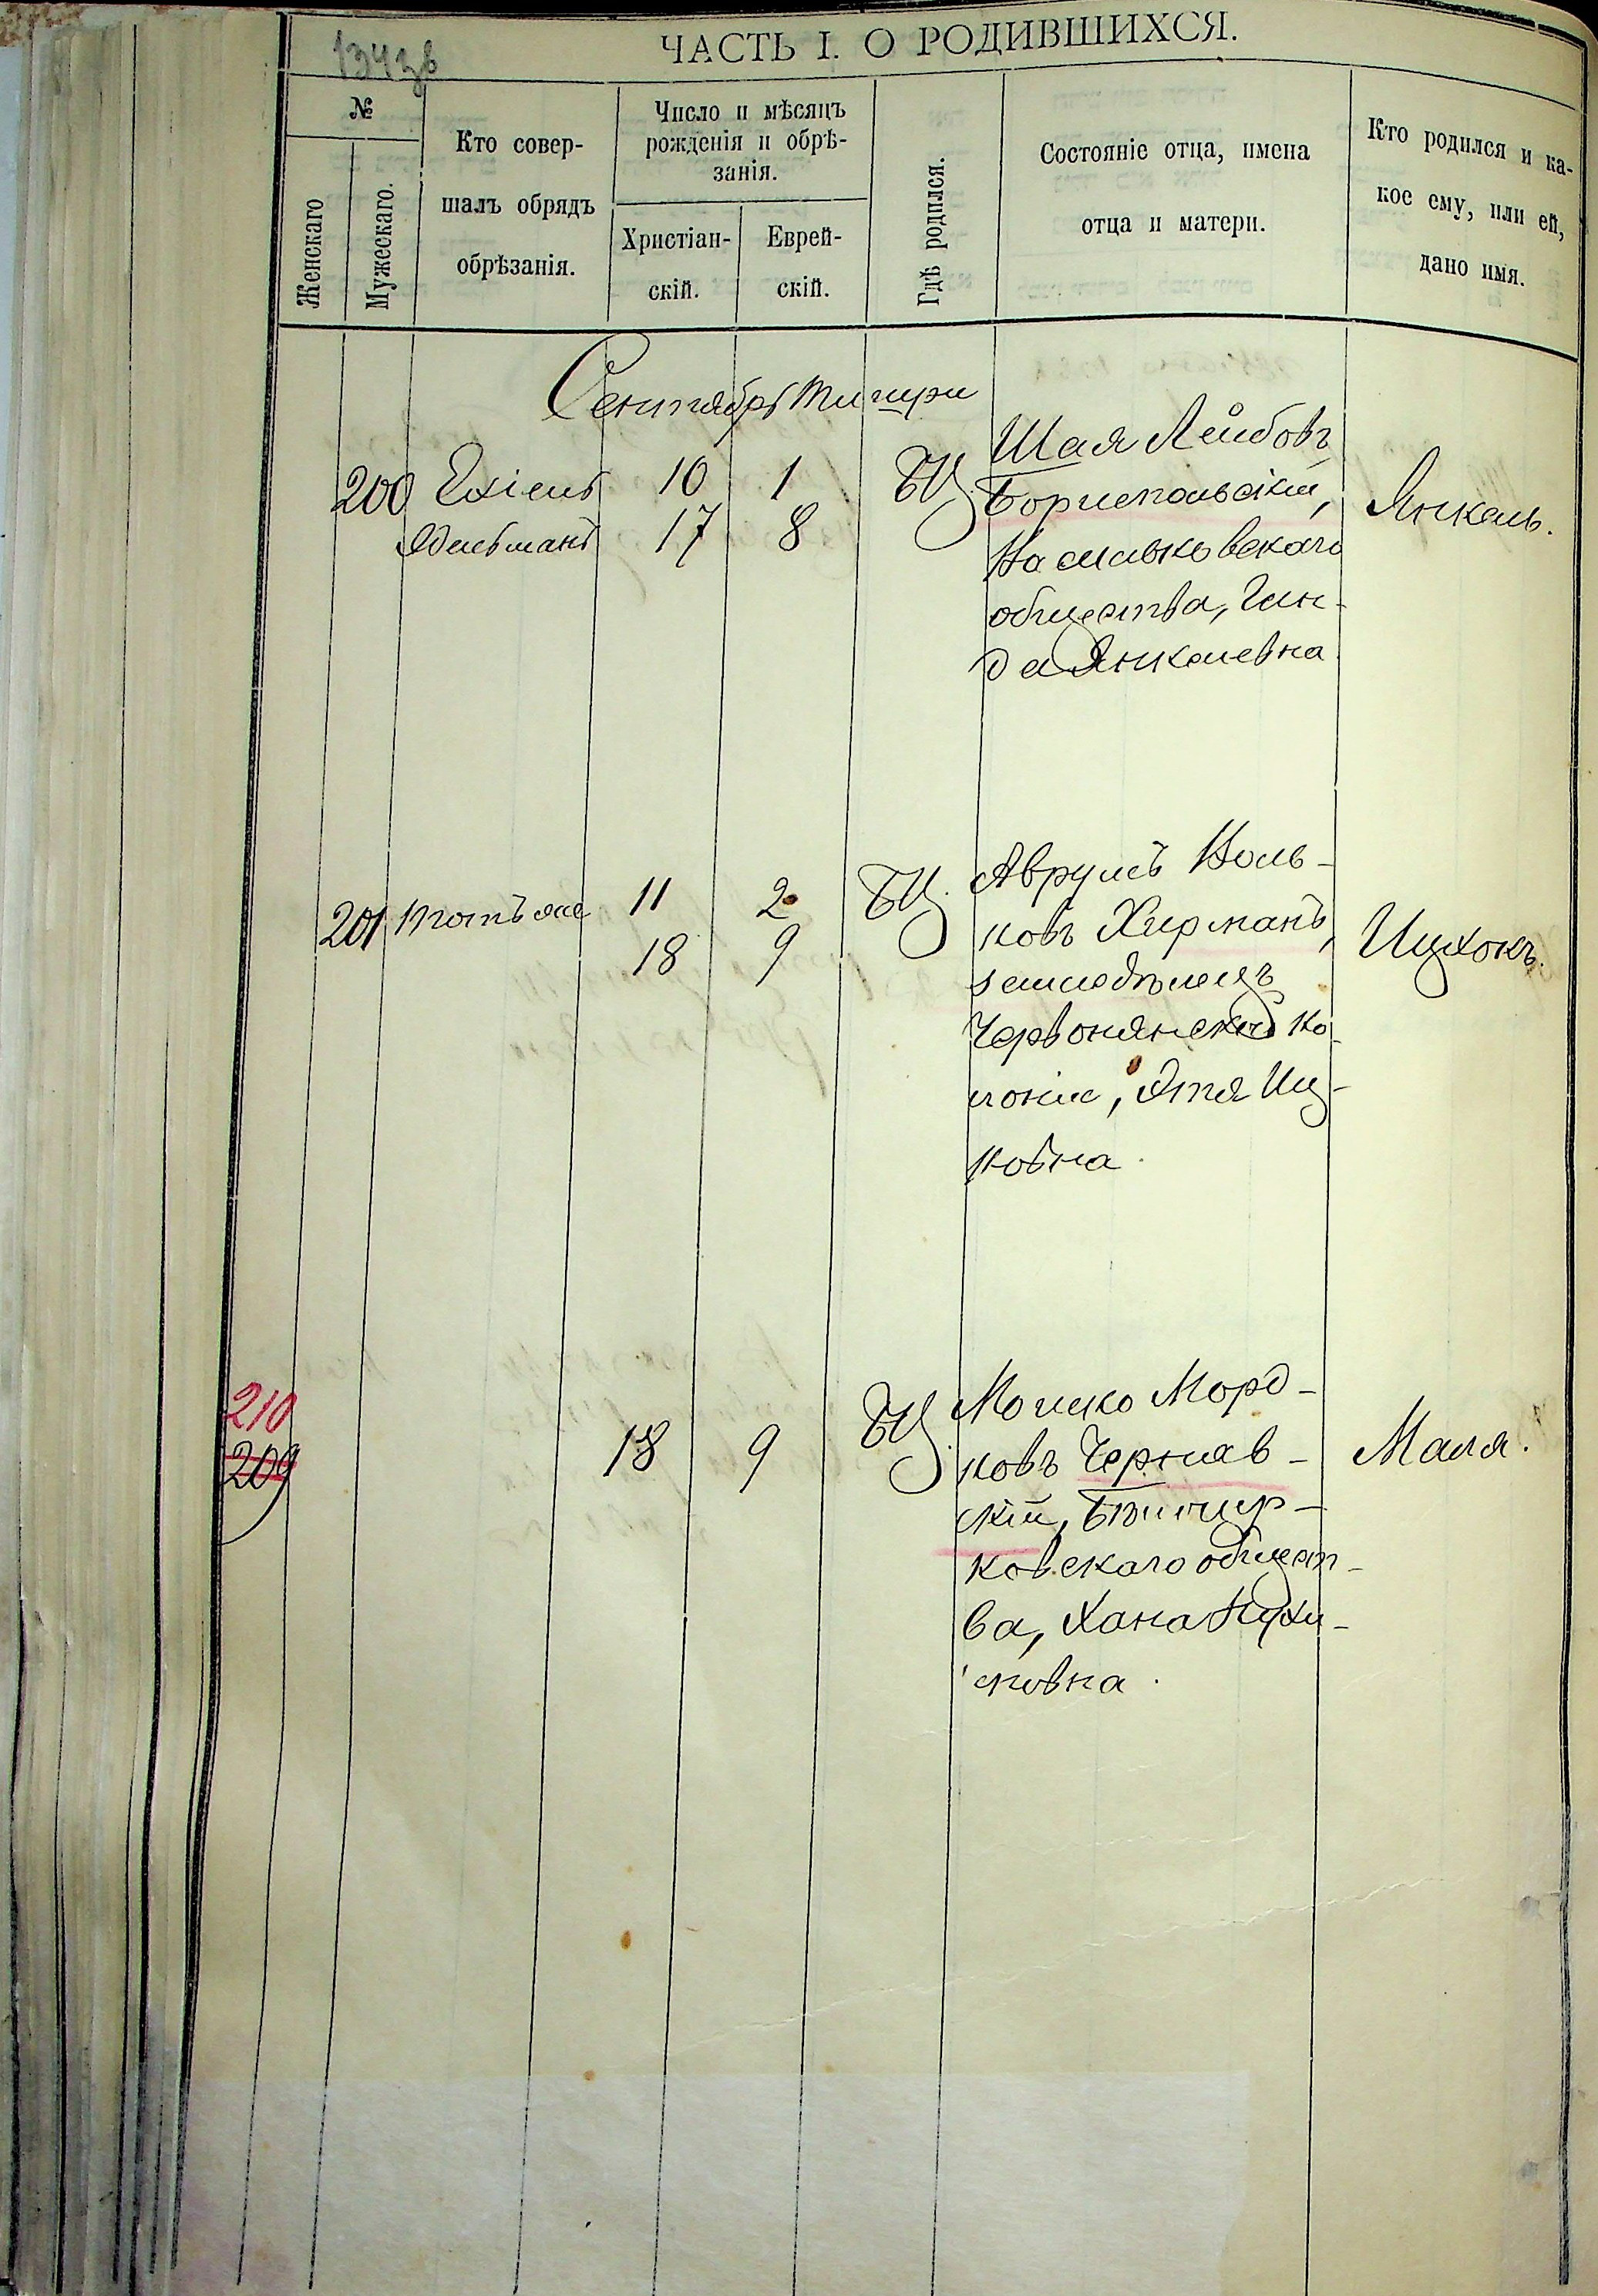 134зв
ЧАСТЬ I. О РОДИВШИХСЯ.
№
Женскаго
Мужескаго.
Кто совер-
шалъ обрядъ
обрѣзанія.
Число и мѣсяцъ
рожденія и обрѣ-
занія.
Христіан-
скій.
Еврей-
скій.
Гдѣ родился.
Состояніе отца, имена
отца и матери.
Кто родился и ка-
кое ему, или ей,
дано имя.
Сентябрь Тишри
200 Ехіель 10 1 БЦ. Шая Лейбовъ
17 8 Бориспольскій, Янкель.
общества, Гин-
да Янкелевна
201 Тотъ же 11 2 БЦ. Аврумъ Воль-
18 9 ковъ Хирманъ, Ицхокъ.
земледѣлецъ
Червонянской ко-
лоніи, Этя Иц-
ковна.
210
209 18 9 БЦ. Мошко Морд-
ковъ Черняв- Маля.
скій,
ковскаго общест-
ва, Хана
мовна.